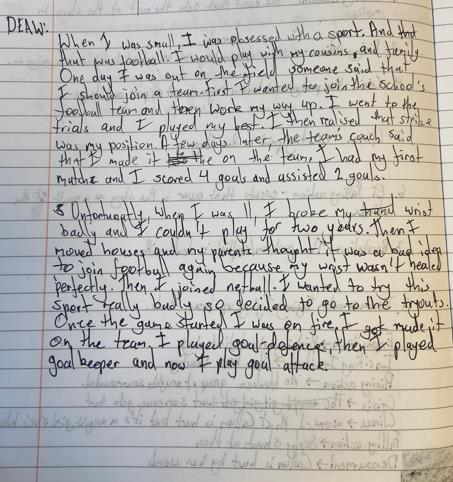 DEAW:
When I was small, I was obsessed with a sport. And that
that was football. I would play with my cousins, and family.
One day I was out on the field someone said that
I should join a team. first I wanted to join the school's
football team and then work my way up. I went to the
trials and I played my best. I then realised that strike
was my position. A few days later, the team's coach said
that I made it the on the team, I had my first
match and I scored 4 goals and assisted 2 goals.
Unfortunatly, when I was 11, I broke my hand wrist
badly and I couldn't play for two years. Then I
moved houses and my parents thought it was a bad idea
to join football again because my wrist wasn't healed
perfectly. Then I joined netball. I wanted to try this
sport really badly so decided to go to the tryouts.
Once the game started I was on fire, I got made it
on the team, I played goal-defence, then I played
goal keeper and now I play goal attack.